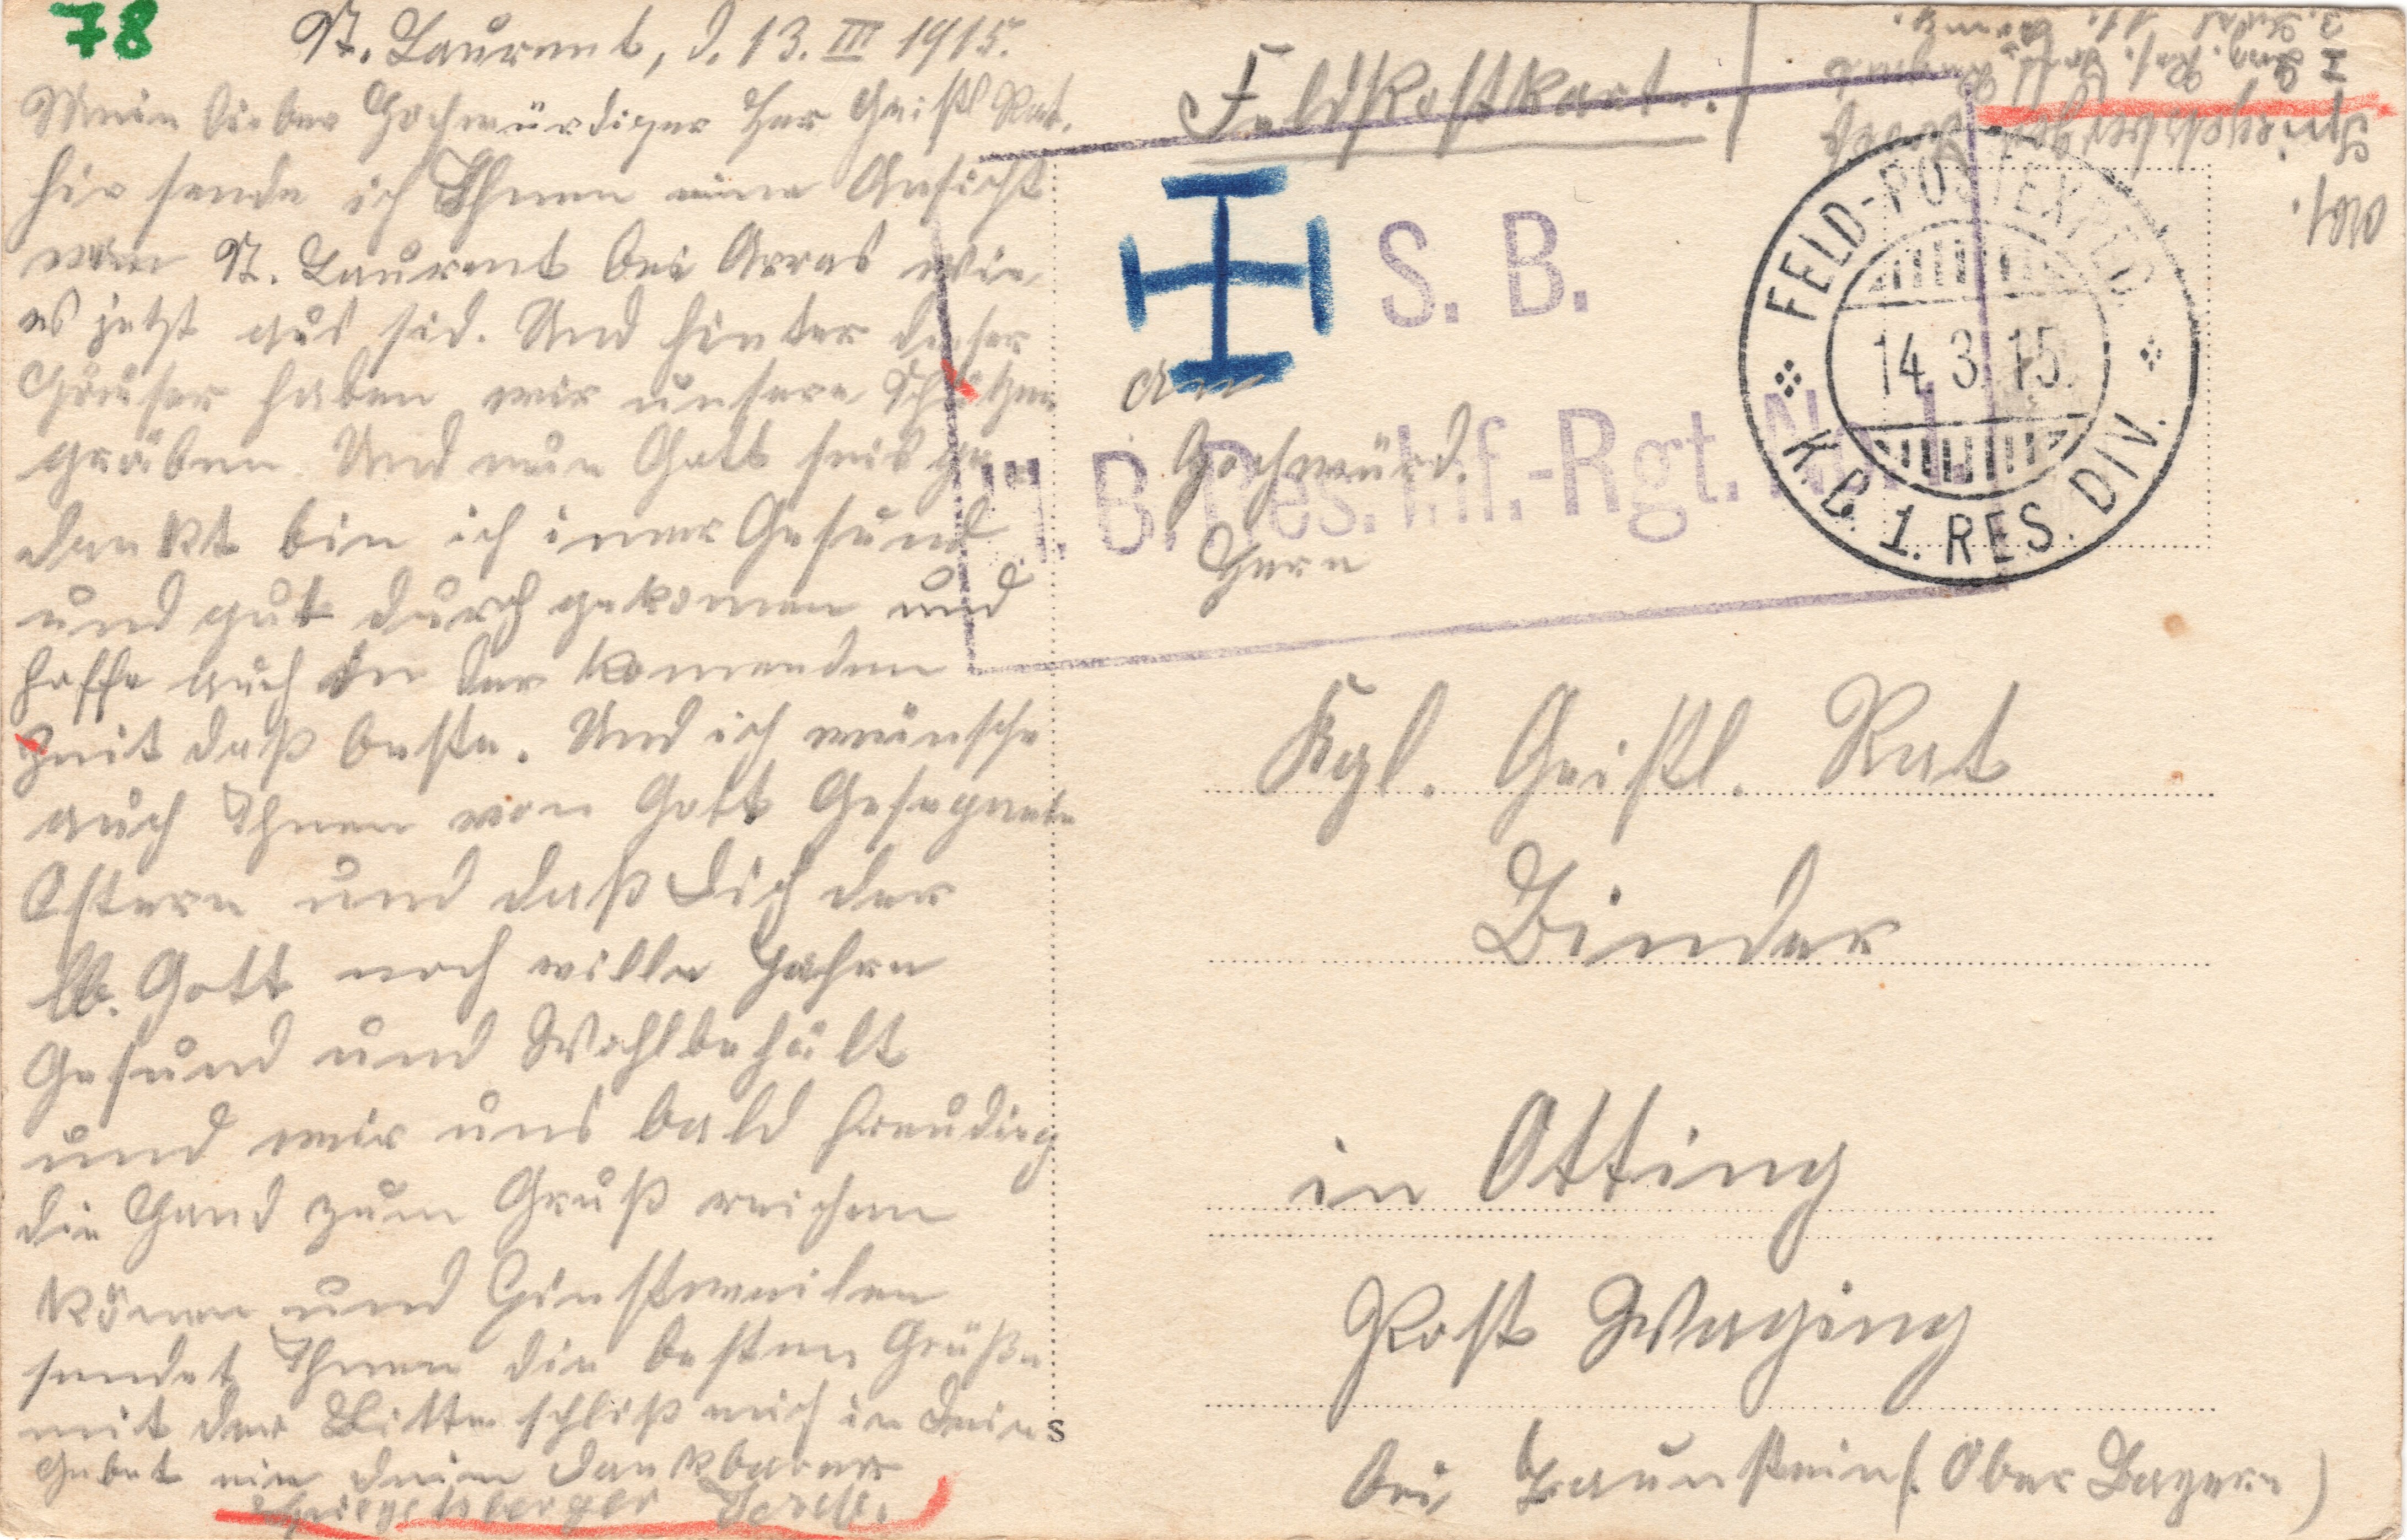 78
St. Laurent, d. 13. III 1915.
Mein lieber Hochwürdiger Her Geistl Rat.
hir sende ich Ihnen eine Ansicht
von St. Laurent bei Arras wie
es jetzt aus sid. Und hinter dieser
Häuser haben wir unsere Schützen
gräben Und nun Gott seis ge
dankt bin ich imer Gesund
und gut durch gekomen und
hoffe auch in der komenden
Zeit daß beste. Und ich wünsche
auch Ihnen von Gott Gesegnete
Ostern und daß Dich der
lb. Gott noch wille Jahre
Gesund und Wohlbehält
und wir uns bald freudieg
die Hand zum Gruß reichen
könen und Einstweilen
sendet Ihnen die besten Grüße
mit der Bitte schließ mich in Dein
Gebet ein dein dankbarer
Spiegelsberger Josef.
s
Feldpostkarte.
Abs.
Spiegelsberger Josef
I. Res.
S. B.
B. Res. Inf.-Rgt. No. 1.
FELD-POSTEXPED.
14. 3. 15.
K. B. 1. RES. DIV.
An
Hochwürd.
Herrn
Kgl. Geistl. Rat
Binder
in Otting
Post Waging
bei Traunstein (Ober Bayern)